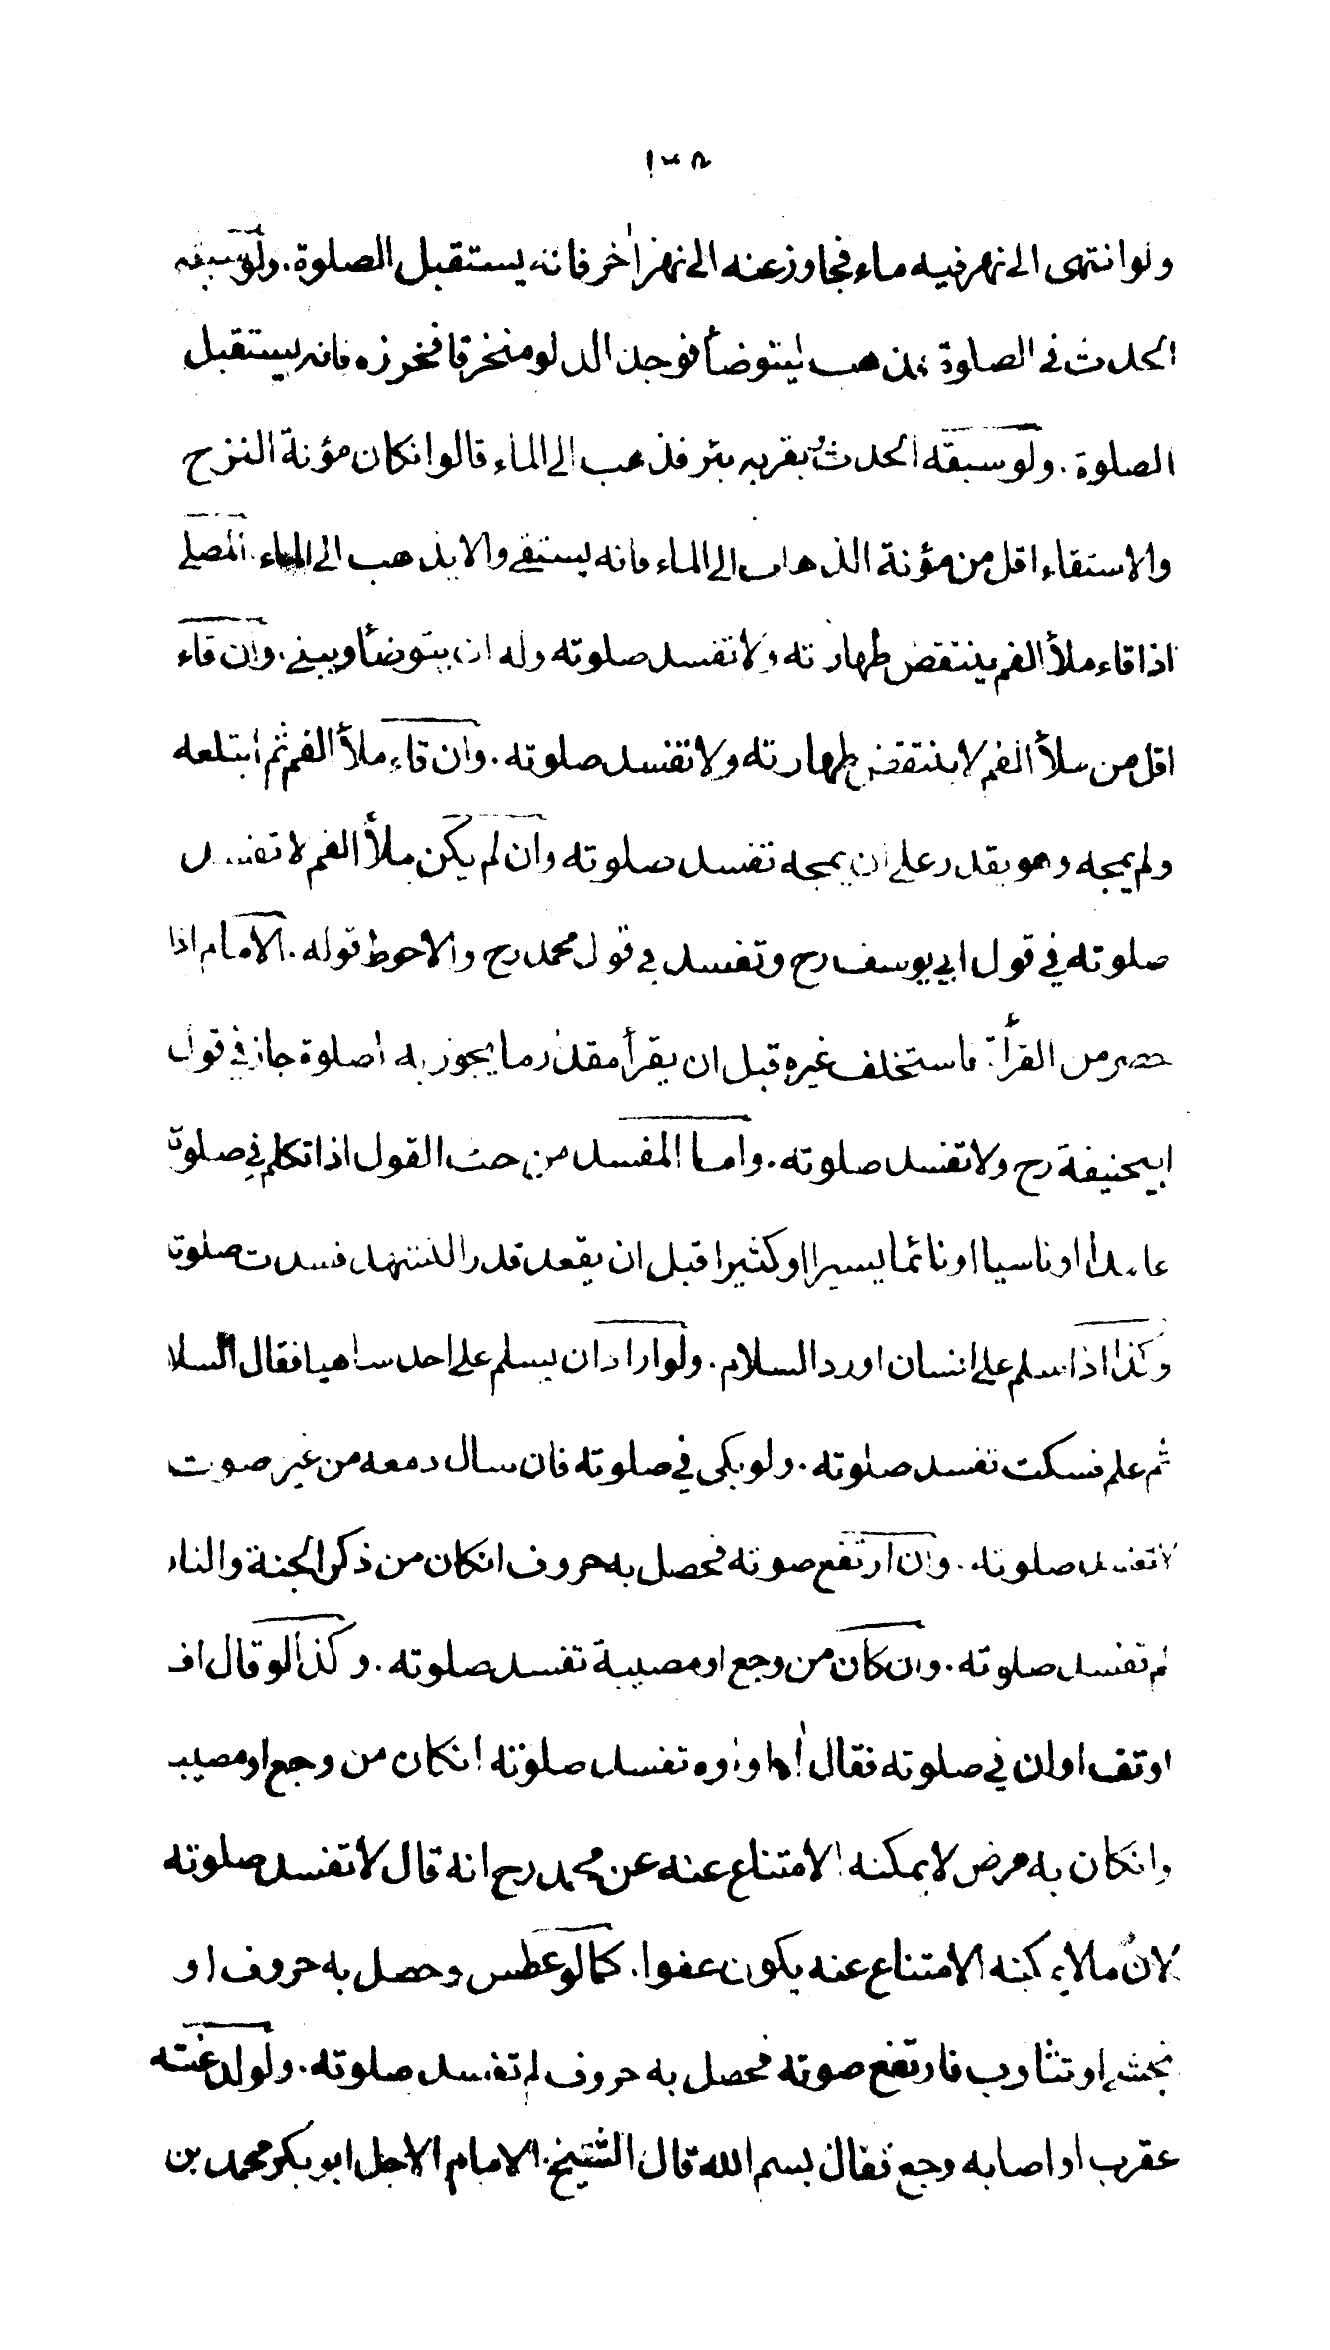 ١٣٨
ولو انتهى الى نهر فيه ماء فجاوز عنه الى نهر اٰخر فانه يستقبل الصلوة. ولو سبقه
الحدث في الصلوة فذهب ليتوضأ فوجد الدلو منخرقا فخرزه فانه يستقبل
الصلوة. ولو سبقه الحدث بقربه بئر فذهب الى الماء قالوا انكان مؤنة النزح
والاستقاء اقل من مؤنة الذهاب الى الماء فانه يستقي والا يذهب الى الماء. المصلي
اذا قاء ملأ الفم ينتقض طهارته ولا تفسد صلوته وله ان يتوضأ ويبني. وان قاء
اقل من ملأ الفم لا ينتقض طهارته ولا تفسد صلوته. وان قاء ملأ الفم ثم ابتلعه
ولم يمجه وهو يقدر على ان يمجه تفسد صلوته وان لم يكن ملأ الفم لا تفسد
صلوته في قول ابي يوسف رح وتفسد في قول محمد رح والاحوط قوله. الامام اذا
حصر من القرأة فاستخلف غيره قبل ان يقرأ مقدار ما يجوز به الصلوة جاز في قول
ابيحنيفة رح ولا تفسد صلوته. واما المفسد من حيث القول اذا تكلم في صلوته
عامدا او ناسيا او نائما يسيرا او كثيرا قبل ان يقعد قدر التشهد فسدت صلوته
وكذا اذا سلم على انسان او رد السلام. ولو اراد ان يسلم على احد ساهيا فقال السلا
ثم علم فسكت تفسد صلوته. ولو بكى في صلوته فان سال دمعه من غير صوت
لا تفسد صلوته. وان ارتفع صوته فحصل به حروف انكان من ذكر الجنة والنار
لم تفسد صلوته. وان كان من وجع او مصيبة تفسد صلوته. وكذا لو قال اف
او تف او ان في صلوته فقال اٰه او اوه تفسد صلوته انكان من وجع او مصيبة
وانكان به مرض لا يمكنه الامتناع عنه عن محمد رح انه قال لا تفسد صلوته
لان مالا يمكنه الامتناع عنه يكون عفوا. كما لو عطس وحصل به حروف او
تجشى او تثاوب فارتفع صوته فحصل به حروف لم تفسد صلوته. ولو لدغته
عقرب او اصابه وجع فقال بسم الله قال الشيخ الامام الاجل ابو بكر محمد بن